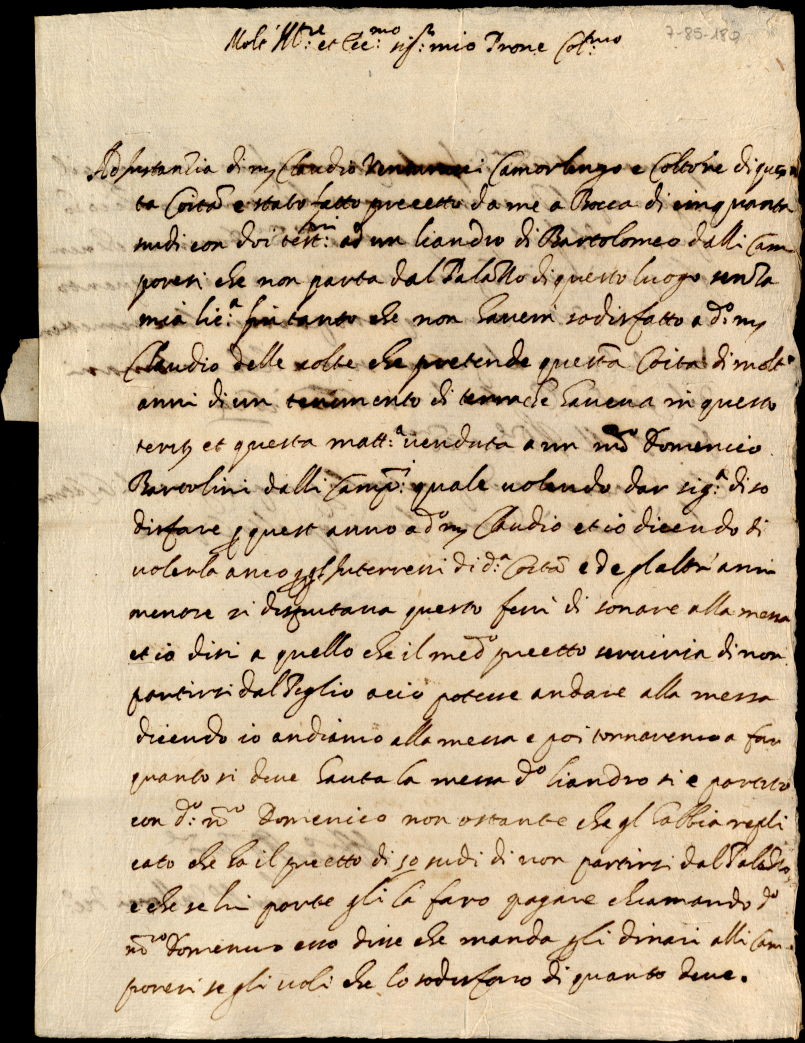 7-85-180
Molt' Ill:re et Ecc:mo sig:r mio Prone Col:mo
Ad Instantia di m Claudio Camorlingo e Coltore di ques
ta Coita e stato fatto precetto da me a Bocca di cinquanta
scudi con doi test:ni ad un liandro di Bartolomeo dalli Cam
poresi che non parta dal Palazzo di questo luogo senza
mia lic:a fin tanto che non haverà sodisfatto a d:o m
Claudio delle colte che pretende questa Coita di molt'
anni di un tenimento di terra che haveva in questo
territ et questa matt:a venduta a un m:ro Domenico
Bartolini dalli Camp:i quale volendo dar sig:a di so
disfare p quest anno a d:o m Claudio et io dicendo di
volerla anco Interressi di d:a Coita e de gl'altri anni
mentre si disputava questo ferì di sonare alla messa
et io dissi a quello che il med:o precetto serviria di non
partirsi dal acio potesse andare alla messa
dicendo io andiamo alla messa e poi tornaremo a far
quanto si deve hauta la messa d:o liandro si e partito
con d:o m:ro Domenico non ostante che gl habbia repli
cato che ha il precetto di 50 scudi di non partirsi dal Palazzo,
e che se lui parte gli la faro pagare chiamando d:o
m:ro Domenico esso disse che manda gli dinari alli Cam-
poresi se gli voli che lo sodisfaro di quanto deve.